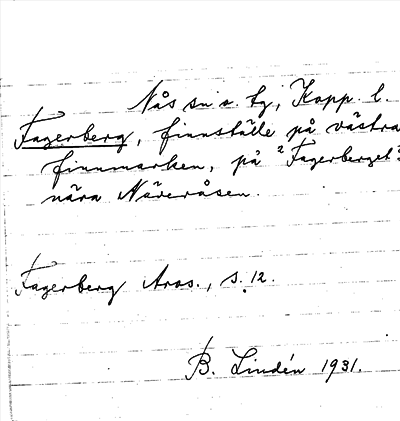 Nås sn o. tg, Kopp. l.
Fagerberg, finnställe på västra
finnmarken, på "Fagerberget"
nära Näveråsen.
Fagerberg Aros., s. 12.
B. Lindén 1931.